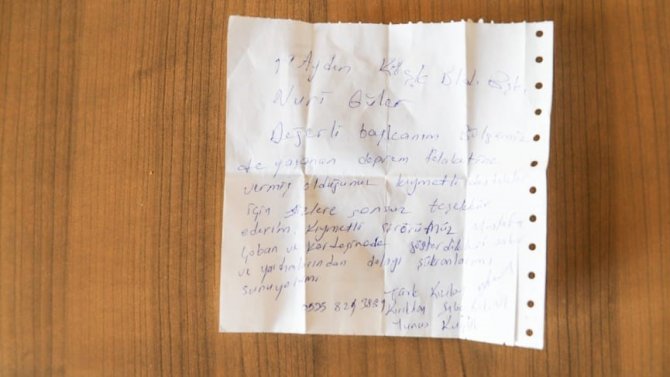 Aydın Köşk Bld. Bşk.
Nuri Güler
Değerli başkanım Bölgemiz
de yaşanan deprem felaketine
vermiş olduğunuz kıymetli destekler
için sizlere sonsuz teşekkür
ederim. Kıymetli şöförümüz Mustafa
Çoban ve kardeşimede gösterdikleri sabır
ve yardımlarından dolayı şükranlarımı
sunuyorum
Türk Kızılay
Kırıkhan
Yunus